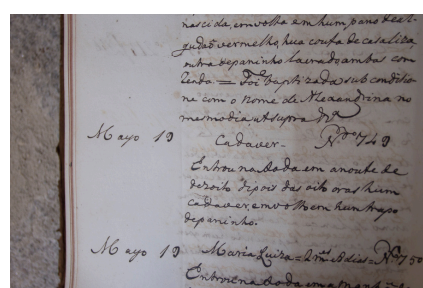 nascida, emvolta em hum pano de al-
gudaõ vermelho, hũa coufa de casa liza,
outra de paninho lavrado, ambas com
renda = Foi baptizada sub conditio-
ne com o nome de Alexandrina no
mesmo dia, ut supra
Mayo 19 Cadaver- Nº 749
Entrou na Roda em a noute de
dezoito depois das oito oras hum
cadaver, emvolto em hum trapo
de paninho.
Mayo 19 Maria Luiza = 2 mˢ. e dias = Nº 750
Entrou na Roda em a